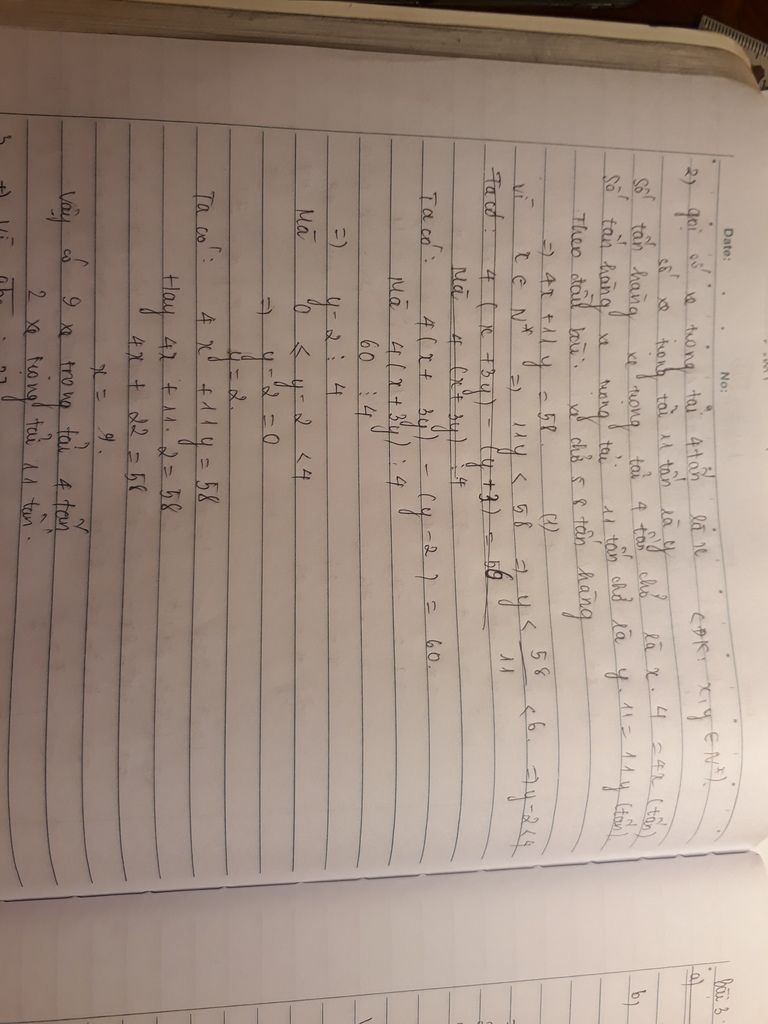 Date:
No:
2) gọi số xe trọng tải 4 tấn là x (ĐK: x, y ∈ N*).
số xe trọng tải 11 tấn là y
Số tấn hàng xe trọng tải 4 tấn chở là x. 4 = 4x (tấn)
Số tấn hàng xe trọng tải 11 tấn chở là y. 11 = 11y (tấn)
Theo đầu bài: xe chở 58 tấn hàng
=) 4x + 11y = 58. (1)
Vì x ∈ N* =) 11y < 58 =) y < 58/11 < 6. =) y - 2 < 4
Ta có: 4 ( x + 3y) - (y + 3) = 56
Mà 4 (x + 3y) ⋮ 4
Ta có: 4 (x + 3y) - (y - 2) = 60.
Mà 4 (x + 3y) ⋮ 4
60 ⋮ 4
=) y - 2 ⋮ 4
Mà 0 ≤ y - 2 < 4
=) y - 2 = 0
y = 2.
Ta có: 4x + 11y = 58
Hay 4x + 11. 2 = 58
4x + 22 = 58
x = 9.
Vậy có 9 xe trọng tải 4 tấn
2 xe trọng tải 11 tấn.
Vì
bài 3
a)
b)